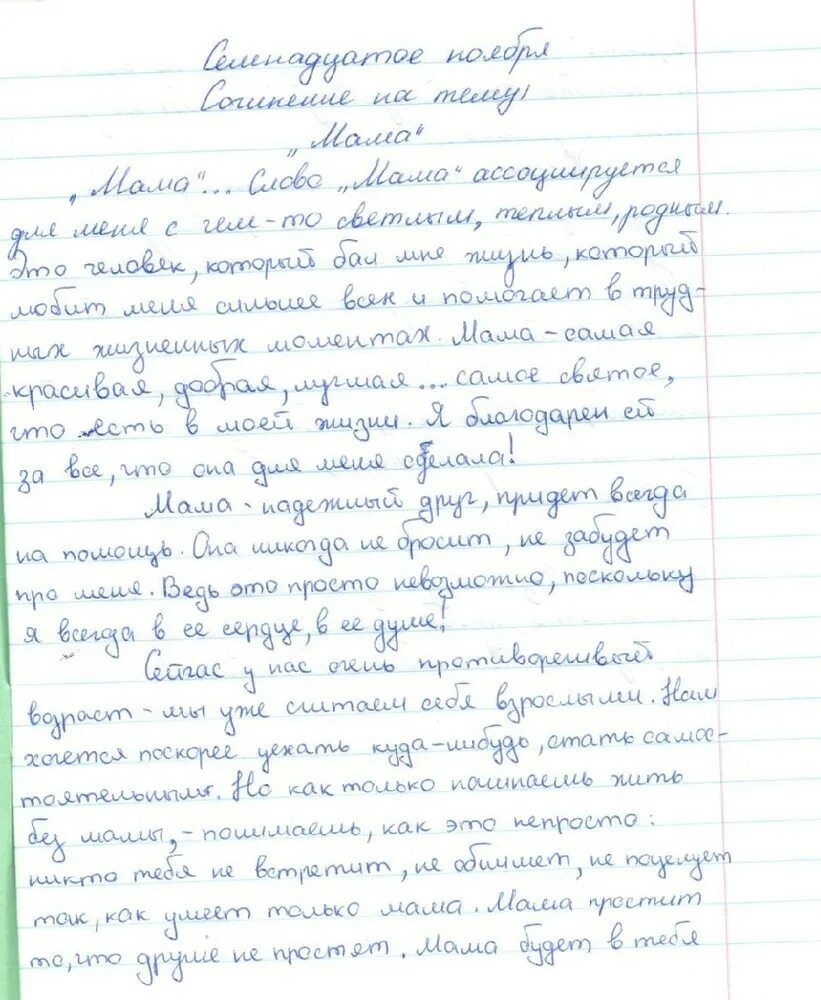 Семнадцатое ноября
Сочинение на тему
„Мама“
„Мама“... Слово „Мама“ ассоциируется
для меня с чем-то светлым, теплым, родным.
Это человек, который дал мне жизнь, который
любит меня сильнее всех и помогает в труд-
ных жизненных моментах. Мама - самая
красивая, добрая, лучшая... самое святое,
что есть в моей жизни. Я благодарен ей
за все, что она для меня сделала!
Мама - надежный друг, придет всегда
на помощь. Она никогда не бросит, не забудет
про меня. Ведь это просто невозможно, поскольку
я всегда в ее сердце, в ее душе!
Сейчас у нас очень противоречивый
возраст - мы уже считаем себя взрослыми. Нам
хочется поскорее уехать куда-нибудь, стать самос-
тоятельными. Но как только начинаешь жить
без мамы, - понимаешь, как это непросто:
никто тебя не встретит, не обнимет, не поцелует
так, как умеет только мама. Мама простит
то, что другие не простят. Мама будет в тебя